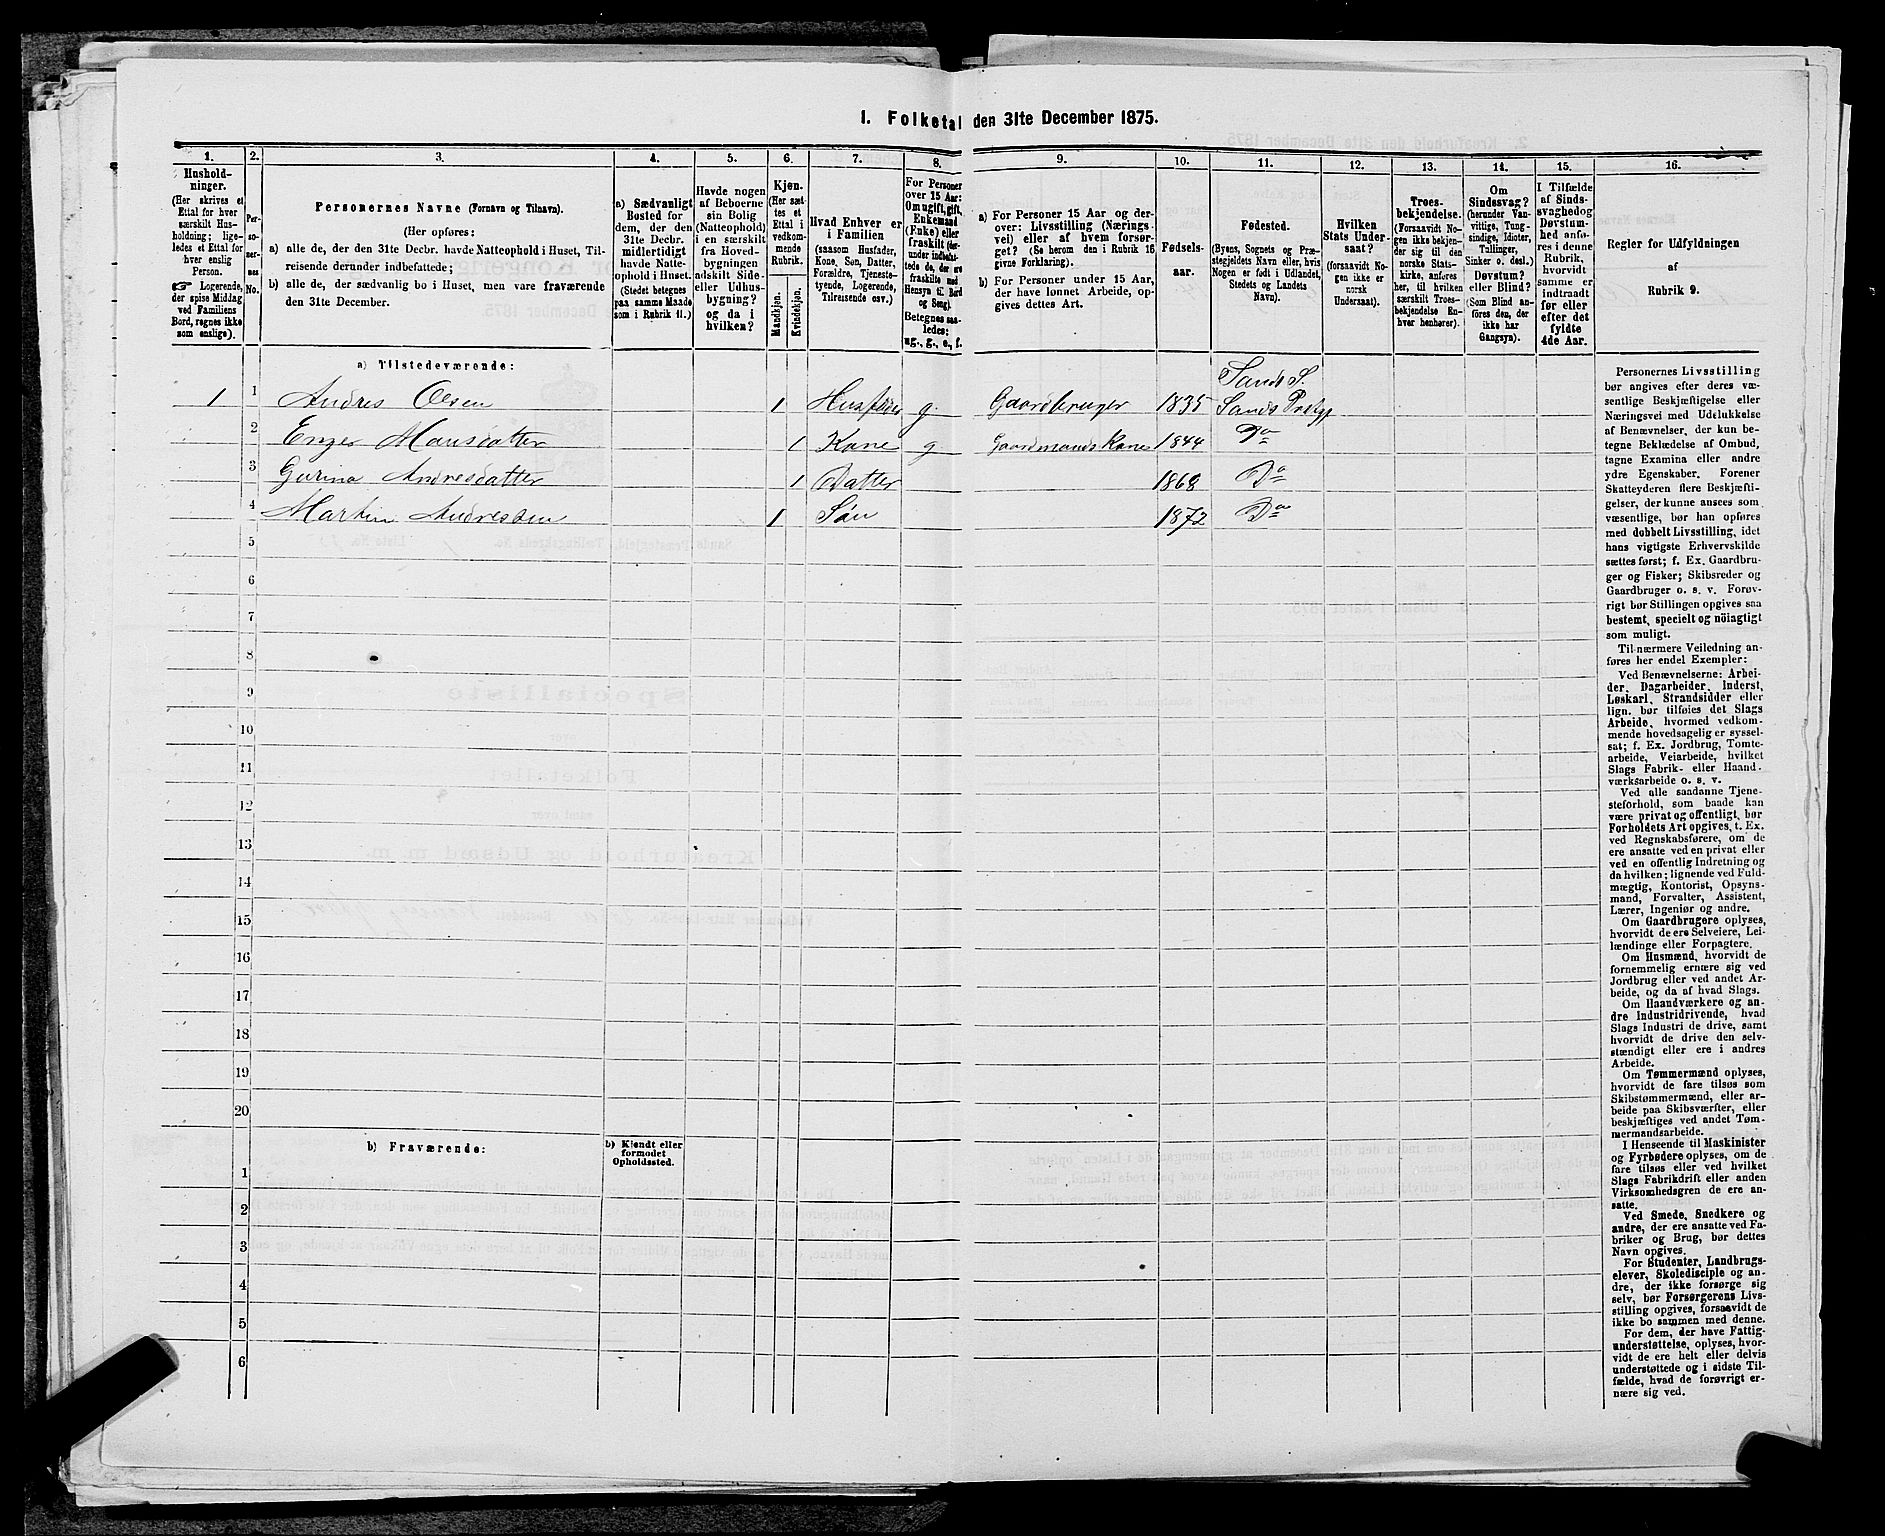 1. Folketal den 31te December 1875.
1.
2.
3.
4.
5.
6.
7.
8.
9.
10.
11.
12.
13.
14.
15.
16.
Husholdninger.
(Her skrives et
Ettal for hver
særskilt Husholdning;
ligeledes et Ettal for
hver enslig
Person.
☞ Logerende,
der spise Middag
ved Familiens
Bord, regnes ikke
som enslige).
Personernes
No.
Personernes Navne (Fornavn og Tilnavn).
(Her opføres:
a) alle de, der den 31te Decbr. havde Natteophold i Huset, Tilreisende derunder indbefattede;
b) alle de, der sædvanlig bo i Huset, men vare fraværende
den 31te December.
a) Sædvanligt
Bosted for
dem, der den
31te Decbr.
midlertidigt
havde Natteophold i Huset.
(Stedet betegnes
paa samme Maade
som i Rubrik 11.)
Havde nogen
af Beboerne
sin Bolig
(Natteophold)
i en særskilt
fra Hovedbygningen
adskilt Side-
eller Udhusbygning?
og da i
hvilken?
Kjøn.
(Her sættes et
Ettal i
vedkommende
Rubrik.
Mandkjøn.
Kvindekjøn.
Hvad Enhver er
i Familien
(saasom Husfader,
Kone, Søn, Datter,
Forældre, Tjenestetyende, Logerende,
Tilreisende osv.)
For Personer
over 15 Aar:
Om ugift, gift,
Enkemand
(Enke) eller
fraskilt (derunder indbefattede de, der ere
fraskilte med
Hensyn til Bord
og Seng).
Betegnes saaledes:
ug., g., e., f.
a) For Personer 15 Aar og derover: Livsstilling (Næringsvei) eller af hvem forsørget? (Se herom den i Rubrik 16
givne Forklaring).
b) For Personer under 15 Aar,
der have lønnet Arbeide, opgives dettes Art.
Fødselsaar.
Fødested.
(Byens, Sognets og Præstegjeldets Navn eller, hvis
Nogen er født i Udlandet,
Stedets og Landets
Navn).
Hvilken
Stats Undersaat?
(forsaavidt Nogen ikke er
norsk
Undersaat).
Troesbekjendelse.
(Forsaavidt Nogen ikke bekjender sig til den
norske Statskirke, anføres
her, til hvilken
særskilt Troesbekjendelse Enhver henhører).
Om
Sindssvag?
(herunder Vanvittige, Tungsindige, Idioter,
Tullinger,
Sinker o. desl.).
Døvstum?
eller Blind?
(Som Blind anføres den, der
ikke har
Gangsyn).
I Tilfælde
af Sindssvaghed og
Døvstumhed anføres i denne
Rubrik,
hvorvidt
samme er
indtraadt
før eller
efter det
fyldte
4de Aar.
Regler for Udfyldningen
af
Rubrik 9.
a) Tilstedeværende:
Sands S.
1 1 Andres Olsen 1 Husfader g. Gaardbruger 1835 Sands Prstgj
2 Enger Mansdatter 1 Kone g. Gaardmands Kone 1844 Do
3 Gurina Andresdatter 1 Datter 1868 Do
4 Martin Andresen 1 Søn 1872 Do
5
6
7
8
9
10
11
12
13
14
15
16
17
18
19
20
b) Fraværende:
b) Kjendt eller
formodet
Opholdssted.
1
2
3
4
5
6
Personernes Livsstilling
bør angives efter deres væsentlige Beskjæftigelse eller
Næringsvei med Udelukkelse
af Benævnelser, der kun betegne Beklædelse af Ombud,
tagne Examina eller andre
ydre Egenskaber. Forener
Skatteyderen flere Beskjæftigelser, der kunne ansees som
væsentlige, bør han opføres
med dobbelt Livsstilling, idet
hans vigtigste Erhvervskilde
sættes først; f. Ex. Gaardbruger og Fisker; Skibsreder og
Gaardbruger o. s. v. Forøvrigt bør Stillingen opgives saa
bestemt, specielt og nöiagtigt
som muligt.
Til nærmere Veiledning anføres her endel Exempler:
Ved Benævnelserne: Arbeider, Dagarbeider, Inderst,
Løskarl, Strandsidder eller
lign. bør tilføies det Slags
Arbeide, hvormed vedkommende hovedsagelig er sysselsat; f. Ex. Jordbrug, Tomtearbeide, Veiarbeide, hvilket
Slags Fabrik- eller Haandværksarbeide o. s. v.
Ved alle saadanne Tjenesteforhold, som baade kan
være privat og offentligt, bør
Forholdets Art opgives, t. Ex.
ved Regnskabsførere, om de
ere ansatte ved en privat eller
ved en offentlig Indretning og
da hvilken; lignende ved Fuldmægtig, Kontorist, Opsynsmand, Forvalter, Assistent,
Lærer, Ingeniør og andre.
Om Gaardbrugere oplyses,
hvorvidt de ere Selveiere, Leilændinge eller Forpagtere.
Om Husmænd, hvorvidt de
fornemmelig ernære sig ved
Jordbrug eller ved andet Arbeide, og da af hvad Slags.
Om Haandværkere og andre Industridrivende, hvad
Slags Industri de drive, samt
hvorvidt de drive den selvstændigt eller ere i andres
Arbeide.
Om Tømmermænd oplyses,
hvorvidt de fare tilsøs som
Skibstømmermænd, eller arbeide paa Skibsværfter, eller
beskjæftiges ved andet Tømmermandsarbeide.
I Henseende til Maskinister
og Fyrbødere oplyses, om de
fare tilsøs eller ved hvilket
Slags Fabrikdrift eller anden
Virksomhedsgren de ere ansatte.
Ved Smede, Snedkere og
andre, der ere ansatte ved Fabriker og Brug, bør dettes
Navn opgives.
For Studenter, Landbrugselever, Skoledisciple og andre, der ikke forsørge sig
selv, bør Forsørgerens Livsstilling opgives, forsaavidt de
ikke bo sammen med denne.
For dem, der have Fattigunderstøttelse, oplyses, hvorvidt de ere helt eller delvis
understøttede og i sidste Tilfælde, hvad de forøvrigt ernære sig ved.